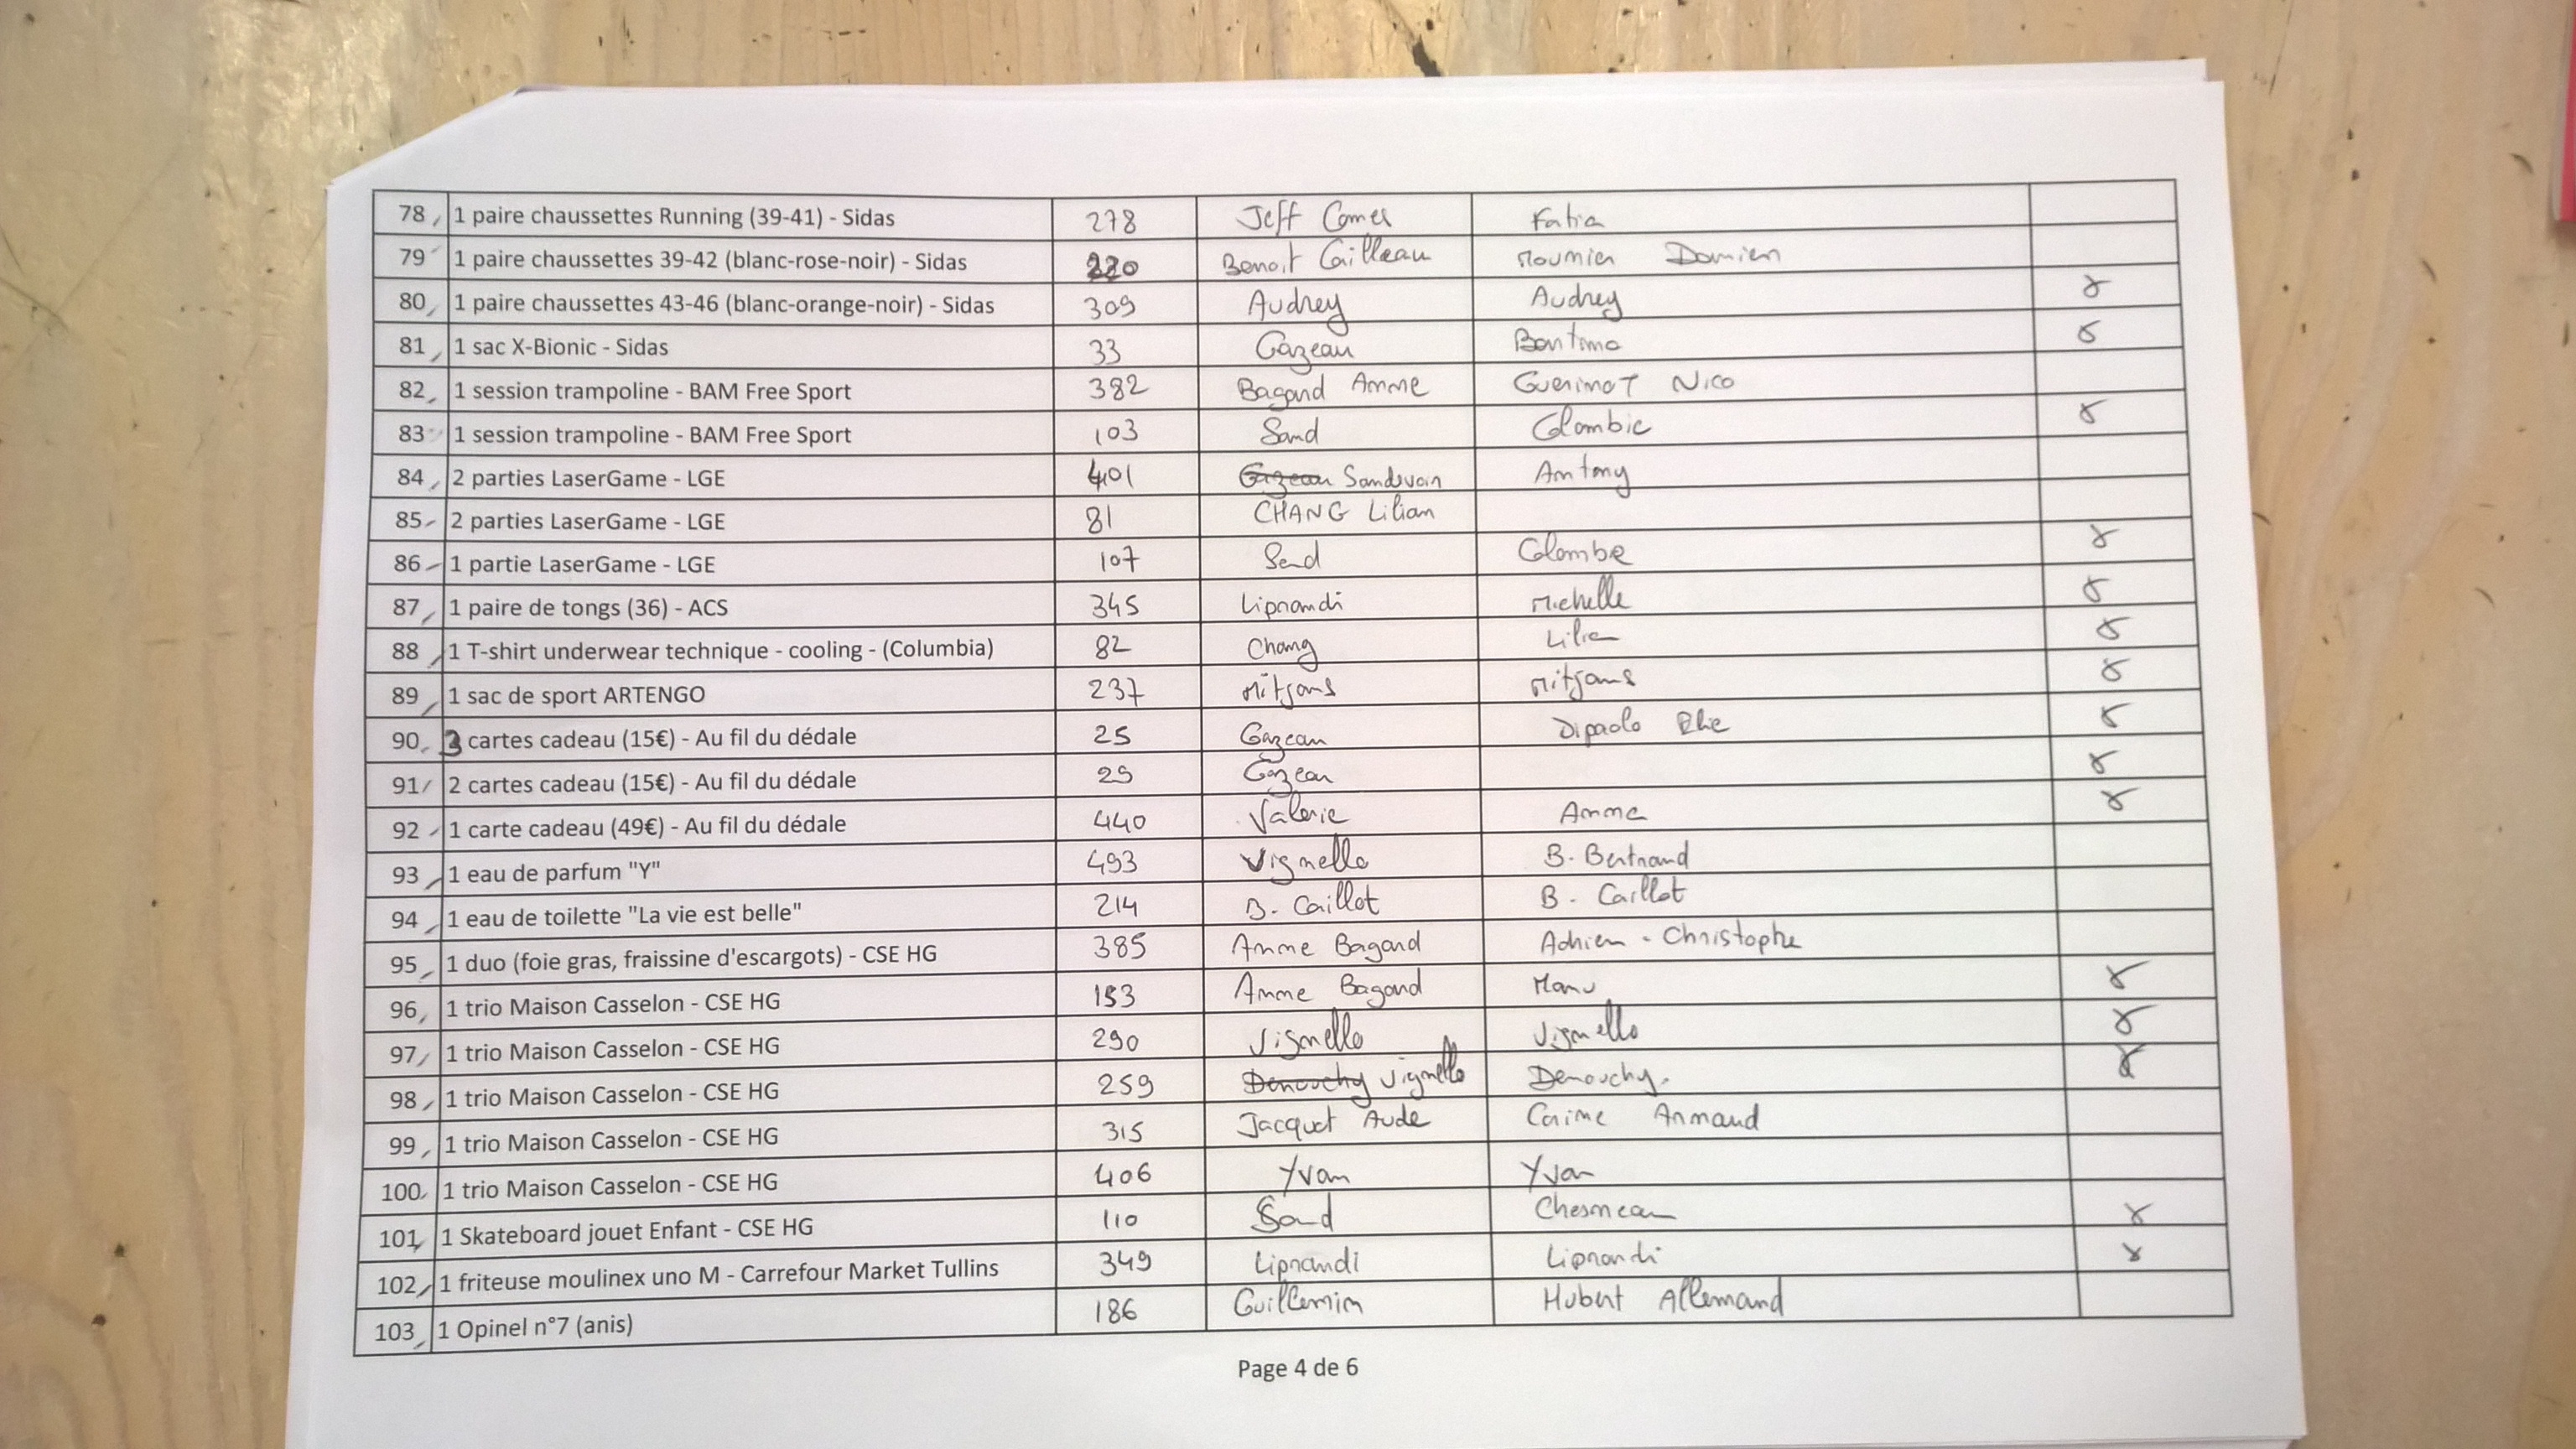 78 1 paire chaussettes Running (39-41) - Sidas 278 Jeff Comes Fatia
79 1 paire chaussettes 39-42 (blanc-rose-noir) - Sidas 220 Benoit Cailleau Mounier Damien
80 1 paire chaussettes 43-46 (blanc-orange-noir) - Sidas 309 Audrey Audrey
81 1 sac X-Bionic - Sidas 33 Gazeau
82 1 session trampoline - BAM Free Sport 382 Bagard Anne Guerinot Nico
83 1 session trampoline - BAM Free Sport 103 Sand Colombic
84 2 parties LaserGame - LGE 401 Gazeau Sandevoir Antony
85 2 parties LaserGame - LGE 81 CHANG Lilian
86 1 partie LaserGame - LGE 107 Sand Colombe
87 1 paire de tongs (36) - ACS 345 Liprandi Michelle
88 1 T-shirt underwear technique - cooling - (Columbia) 82 Chang Lilia
89 1 sac de sport ARTENGO 237 Mitjans Mitjans
90 3 cartes cadeau (15€) - Au fil du dédale 25 Gazeau Dipaolo Elie
91 2 cartes cadeau (15€) - Au fil du dédale 29 Gazeau
92 1 carte cadeau (49€) - Au fil du dédale 440 Valerie Anne
93 1 eau de parfum "Y" 493 Vignello B. Bertrand
94 1 eau de toilette "La vie est belle" 214 B. Caillot B. Caillot
95 1 duo (foie gras, fraissine d'escargots) - CSE HG 385 Anne Bagard Adrien - Christophe
96 1 trio Maison Casselon - CSE HG 153 Anne Bagard Manu
97 1 trio Maison Casselon - CSE HG 290 Vignello Vignello
98 1 trio Maison Casselon - CSE HG 259 Denouchy Vignello Denouchy.
99 1 trio Maison Casselon - CSE HG 315 Jacquot Aude Caime Armand
100 1 trio Maison Casselon - CSE HG 406 Yvan Yvan
101 1 Skateboard jouet Enfant - CSE HG 110 Sand Chesneau
102 1 friteuse moulinex uno M - Carrefour Market Tullins 349 Liprandi Liprandi
103 1 Opinel n°7 (anis) 186 Guillemin Hubert Allemand
Page 4 de 6